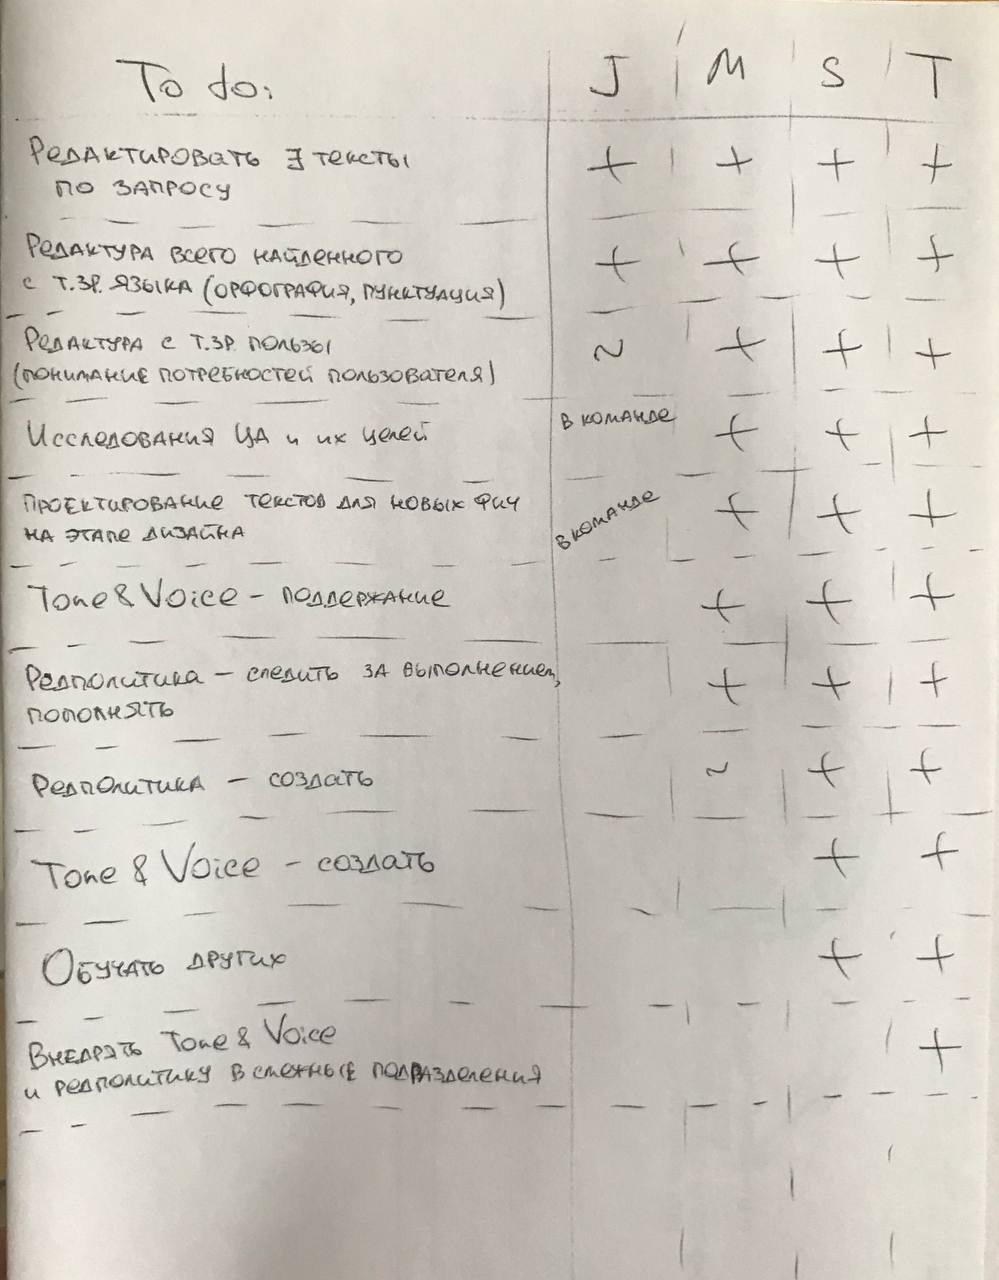 To do: J M S T
Редактировать ∃ тексты + + + +
по запросу
Редактура всего найденного + + + +
с т.зр. языка (орфография, пунктуация)
Редактура с т.зр. пользы ~ + + +
(понимание потребностей пользователя)
Исследования ЦА и их целей в команде + + +
Проектирование текстов для новых фич в команде + + +
на этапе дизайна
Tone & Voice – поддержание + + +
Редполитика – следить за выполнением, + + +
пополнять
Редполитика – создать ~ + +
Tone & Voice – создать + +
Обучать других + +
Внедрять Tone & Voice +
и редполитику в смежные подразделения